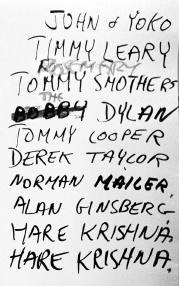 JOHN & YOKO
TIMMY LEARY
ROSEMARY
TOMMY SMOTHERS
THE
BOBBY DYLAN
TOMMY COOPER
DEREK TAYLOR
NORMAN MAILER.
ALAN GINSBERG.
HARE KRISHNA.
HARE KRISHNA.